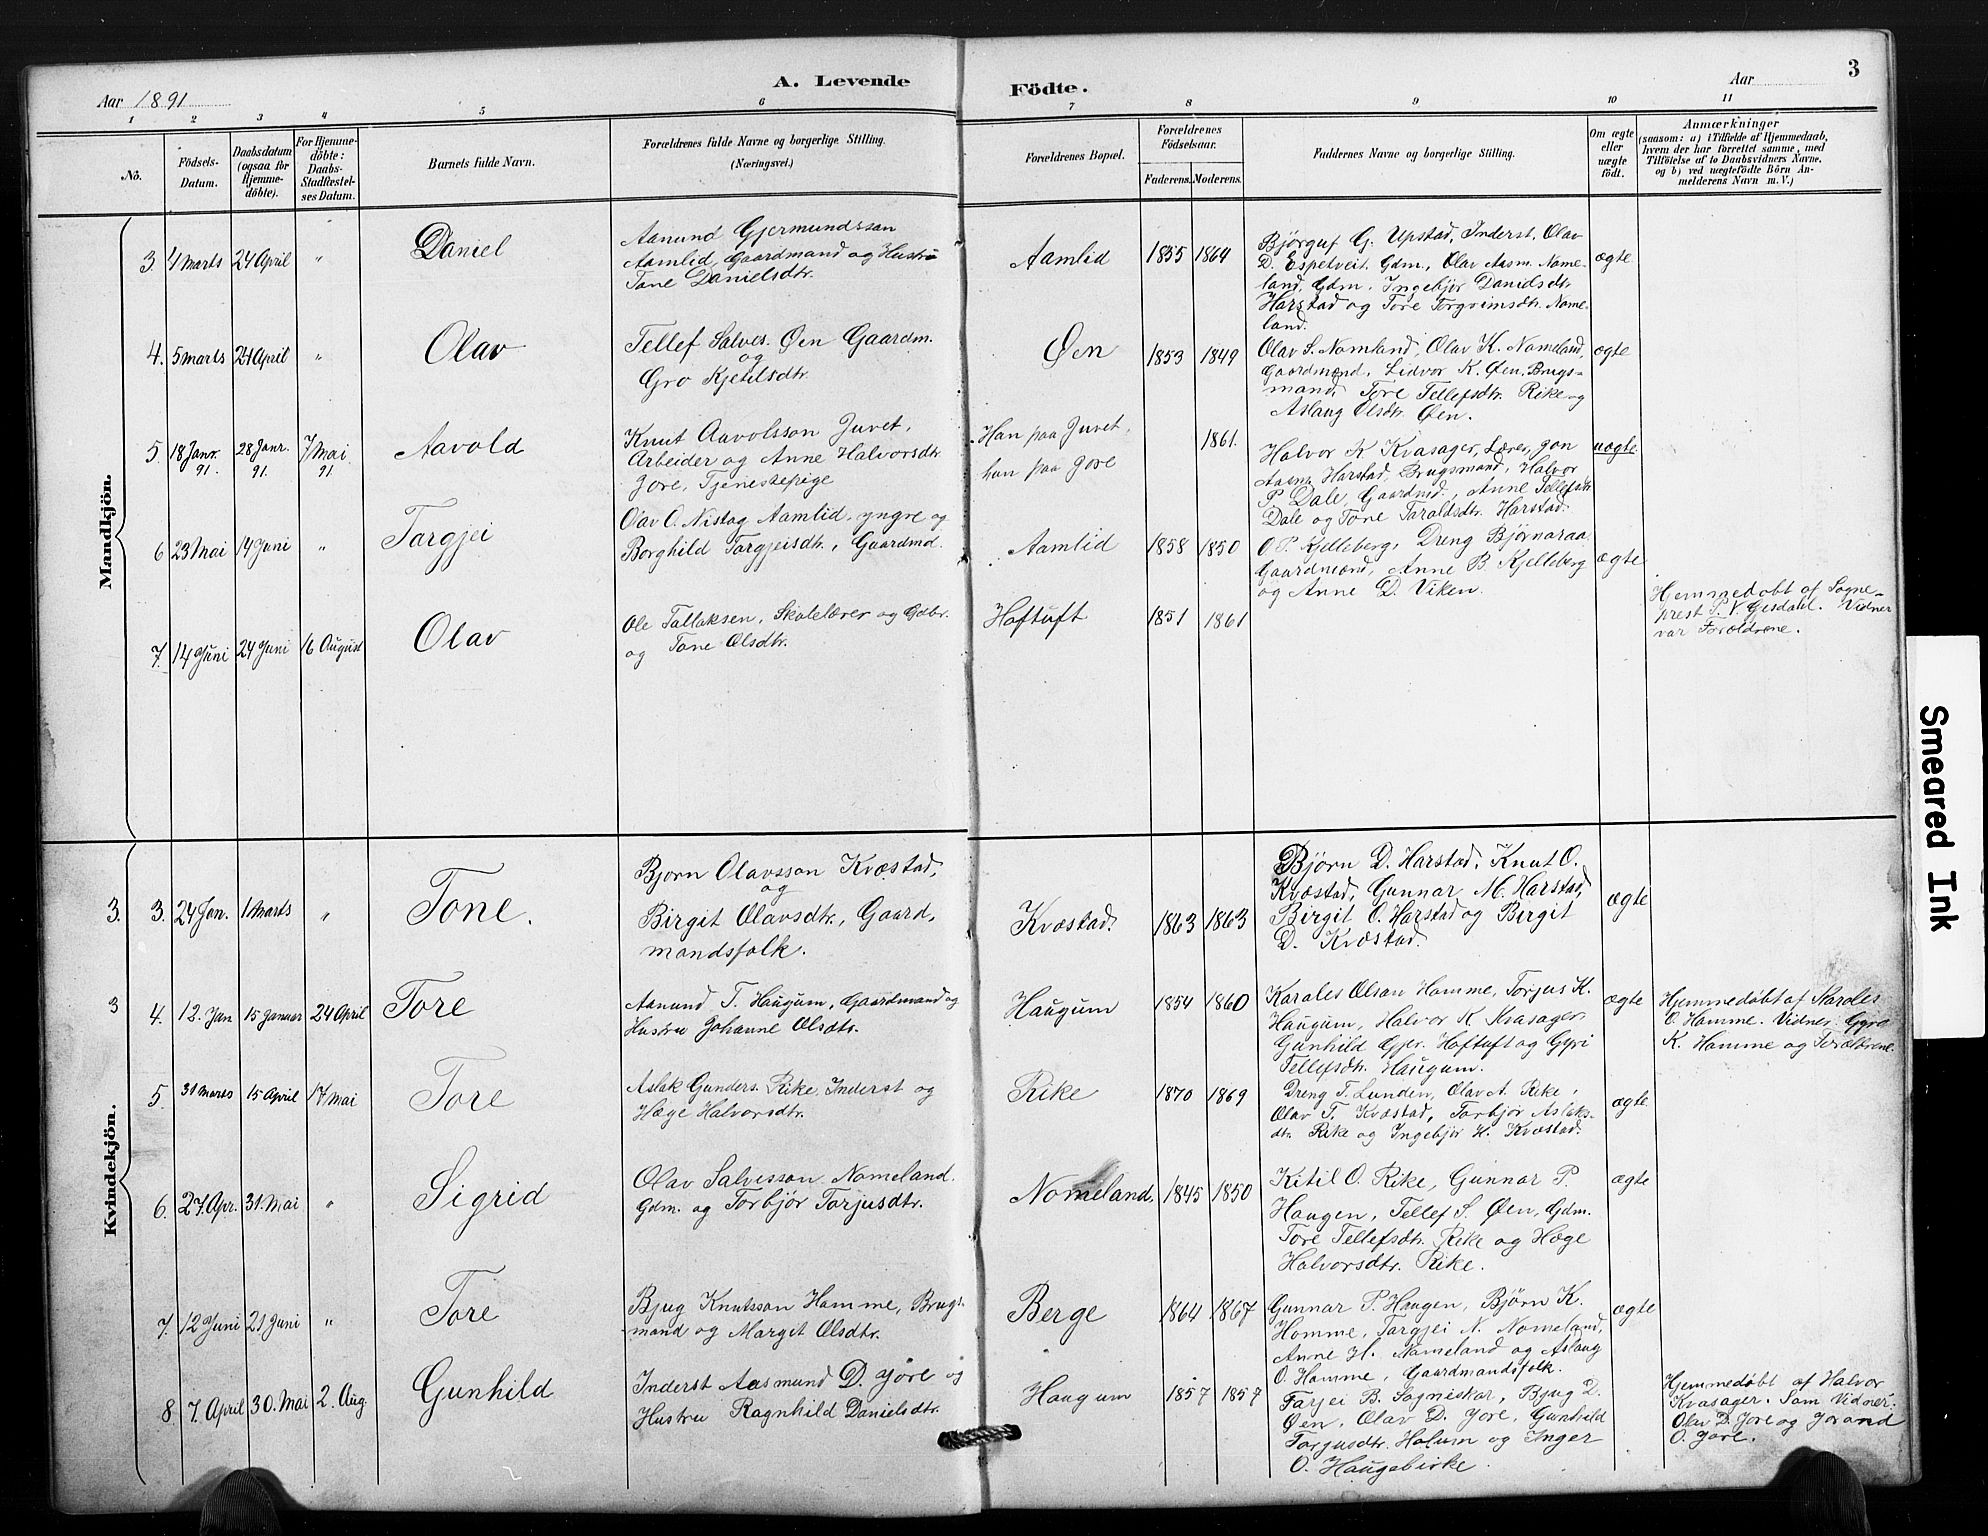 Aar 1891
A. Levende
Födte.
Aar
3
1 2 3 4 5 6 7 8 9 10 11
Nö.
Födsels-
Datum.
Daabsdatum
(ogsaa for
Hjemme-
döbte).
For Hjemme-
döbte:
Daabs-
Stadfæstel-
ses Datum.
Barnets fulde Navn.
Forældrenes fulde Navne og borgerlige Stilling.
(Næringsvei.)
Forældrenes Bopæl.
Forældrenes
Födselsaar.
Faderens. Moderens.
Faddernes Navne og borgerlige Stilling.
Om ægte
eller
uægte
födt.
Anmærkninger
(saasom: a) i Tilfælde af Hjemmedaab,
hvem der har forrettet samme, med
Tilföielse af to Daabsvidners Navne,
og b) ved uægtefödte Börn An-
melderens Navn m. V.)
Mandkjön.
3. 4 Marts 24 April " Daniel
Aanund Gjermundsson
Aamlid, Gaardmand og Hustru
Tone Danielsdtr.
Aamlid 1855 1864
Bjørguf G. Upstad, Inderst, Olav
D. Espetveit. Gdm., Olav Aasm. Nome-
land, Gdm. Ingebjør Danielsdtr.
Harstad og Tore Torgrimsdtr. Nome-
land.
ægte
4. 5 Marts 24 April " Olav
Tellef Salves. Øen Gaardm.
og
Gro Kjetilsdtr.
Øen 1853 1849
Olav S. Nomland, Olav K. Nomeland,
Gaardmænd, Lidvor K. Øen, Brugs-
mand, Tore Tellefsdtr. Rike og
Aslaug Olsdtr. Øen.
ægte
5. 18 Janr. 91. 28 Janr. 91. 7 Mai 91 Aavold
Knut Aavolsson Juvet,
Arbeider og Anne Halvorsdtr.
Jore, Tjenestepige
Han paa Juvet,
hun paa Jore
1861.
Halvor K Kvasager, Lærer, Jon
Aasm. Harstad, Brugsmand, Halvor
P. Dale, Gaardmd., Anne Tellefsdtr
Dale og Tone Taraldsdtr. Harstad.
uægte
6 23 Mai 14 Juni " Targjei
Olav O. Nistog Aamlid, yngre og
Borghild Targjeisdtr., Gaardmd.
Aamlid 1858 1850
O. P. Kjelleberg, Dreng Bjørnaraa
Gaardmænd, Anne B. Kjelleberg
og Anne D. Viken.
ægte
7. 14 Juni 24 Juni 16 August Olav
Ole Tallaksen, Skolelærer og Gdbr.
og Tone Olsdtr.
Hoftuft 1851 1861
Hjemmedøbt af Sogne-
prest P. V. Gjesdahl. Vidner
var Forældrene.
Kvindekjön.
3. 3. 24 Jan. 1 Marts " Tone.
Bjorn Olavsson Kvæstad,
og
Birgit Olavsdtr., Gaard,
mandsfolk.
Kvæstad. 1863 1863
Bjørn D. Harstad, Knut O.
Kvæstad, Gunnar M. Harstad,
Birgit O. Harstad og Birgit
D. Kvæstad.
ægte
3 4. 12. Jan 15 Januar 24 April Tore
Aanund T. Haugum, Gaardmand og
Hustru Johanne Olsdtr.
Haugum 1854 1860
Karales Olsan Homme, Torjus K.
Haugum, Halvor K Kvasager,
Gunhild Gjer. Hoftuft og Gyri
Tellefsdtr. Haugum.
ægte
Hjemmedøbt af Karoles
O. Homme. Vidner Gyro
K. Homme og Forældrene.
5. 31 Marts 15 April 17 Mai Tore
Aslak Gunders. Rike, Inderst og
Hæge Halvorsdtr.
Rike 1870 1869
Dreng T. Lunden, Olav A. Rike,
Olav T. Kvæstad, Torbjør Aslaks-
dtr. Rike og Ingebjør H. Kvæstad.
ægte.
6. 27. Apr. 31. Mai " Sigrid
Olav Salvesson Nomeland.
Gdm. og Torbjør Torjusdtr.
Nomeland. 1845 1850
Kitil O. Rike, Gunnar P.
Haugen, Tellef S. Øen, Gdm.
Tore Tellefsdtr. Rike og Hæge
Halvorsdtr. Rike.
ægte
7. 12 Juni 21 Juni " Tore
Bjug Knutsson Homme, Brugs-
mand og Margit Olsdtr.
Berge 1864 1867
Gunnar P. Haugen, Bjørn K.
Homme, Targjei N. Nomeland,
Anne H. Nomeland og Aslaug
O. Homme, Gaardmandsfolk.
ægte
8. 7. April 30. Mai 2. Aug Gunhild
Inderst Aasmund D. Jore og
Hustru Ragnhild Danielsdtr.
Haugum 1857 1857
Tarjei B. Sagneskar, Bjug D.
Øen, Olav D. Jore, Gunhild
Torjusdtr. Holum og Inger
O. Haugebirke.
Hjemmedøbt af Halvor
Kvasager. Som Vidner
Olav D. Jore og Jorand
O. Jore.
Smeared Ink